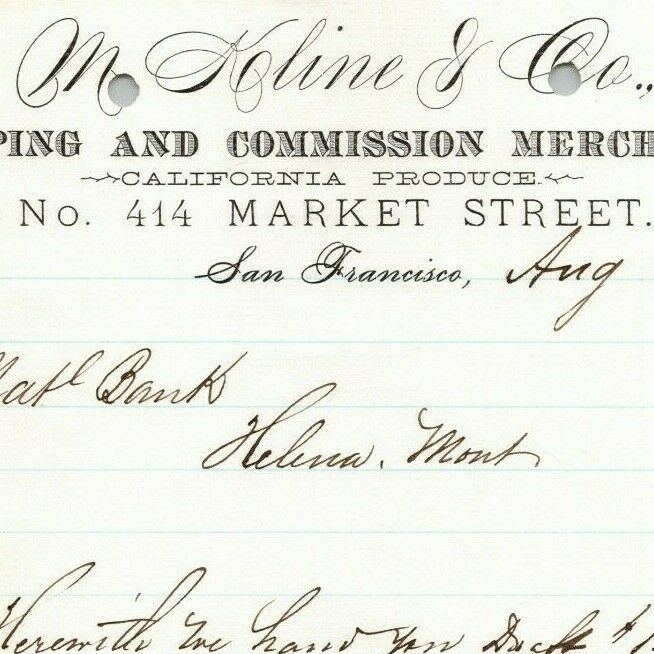 M. Kline & Co.,
PING AND COMMISSION MERCH
CALIFORNIA PRODUCE.
No. 414 MARKET STREET.
San Francisco, Aug
Natl Bank
Helena, Mont
Herewith we hand you Dacft $